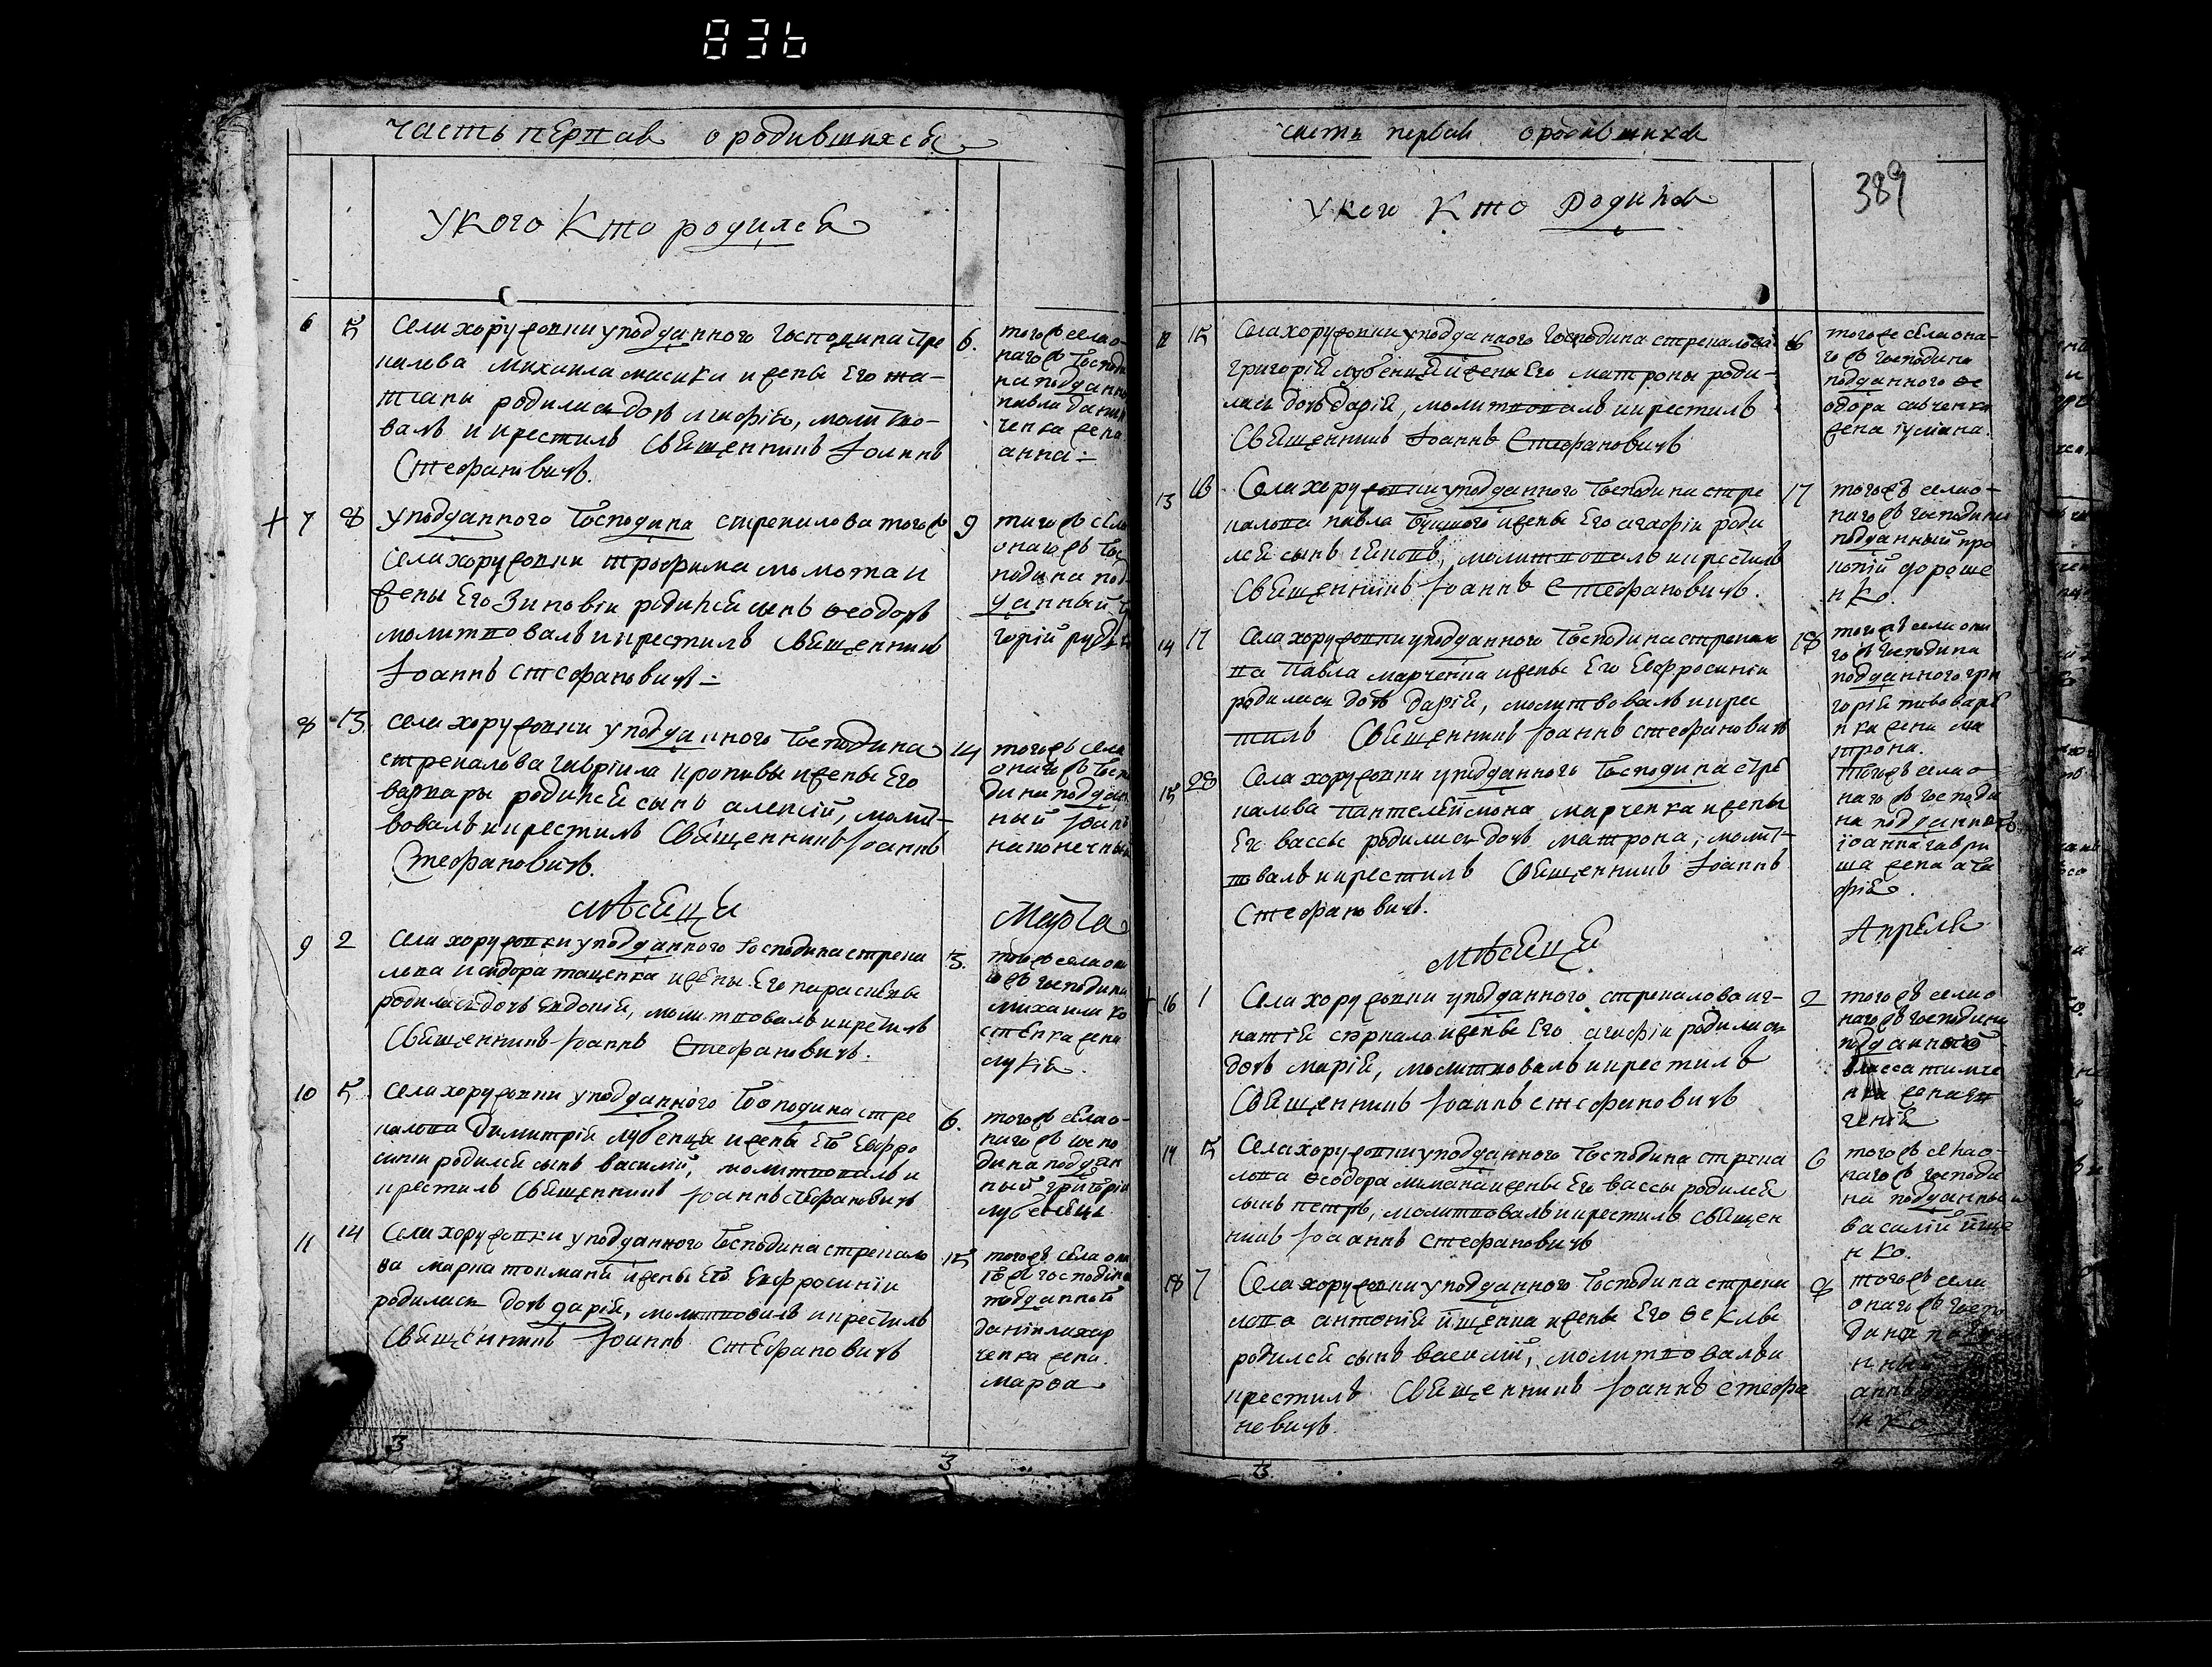 836
часть перваѧ о родившихсѧ
У кого Кто родилсѧ
6 5 Села хоружовки у подданного Господина стре
калова михаила масика и жены Его та-
тианы родилась дочь агафіѧ, молитво-
валъ и крестилъ Свѧщенникъ Іоаннъ
Стефановичъ.
6. тогожъ села о-
нагожъ Господи
на подданно
павла данил
ченка жена
анна
+ 7 8 У подданного Господина стрекалова тогожъ
села хоружовки трофима момота и
жены Его Зиновіи родилсѧ сынъ Ѳеодоръ
молитвовалъ и крестилъ Свѧщенникъ
Іоаннъ стефановичъ
9 тогожъ села
онагожъ Гос
подина под
данный
горій
8 13. села хоружовки у подданного Господина
стрекалова гавріила кропивы и жены Его
варвары родилсѧ сынъ алексій, молит-
вовалъ и крестилъ Свѧщенникъ Іоаннъ
Стефановичъ.
14 тогожъ села
онагожъ Госпо
дина поддан
ный Іоанъ
наконечный
мѣсѧца Марта
9 2 Села хоружовки у подданного Господина стрека
лова исидора тащенка и жены Его параскевы
родилась дочь Евдокіѧ, молитвовалъ и крестилъ
Свѧщенникъ Іоаннъ Стефановичъ.
3. тогожъ села она
гожъ господина
михаила ко
стенка жена
лукіѧ.
10 5 Села хоружовки у подданного Господина стре
калова Димитріѧ лубенца и жены Его Евфро
синіи родилсѧ сынъ василій, молитвовалъ и
крестилъ Свѧщенникъ Іоаннъ Стефановичъ
6. тогожъ села о-
нагожъ госпо
дина поддан
ный григорій
лубенецъ
11 14 Села хоружовки у подданного Господина стрекало
ва марка токманѧ и жены Его Евфросиніи
родилась дочь дарїѧ, молитвовалъ и крестилъ
Свѧщенникъ Іоаннъ Стефановичъ
15 тогожъ села она
гожъ господина
подданного
даніила хар
ченка жена
марѳа
3 3
часть перваѧ о родившихсѧ
389
У кого Кто Родилсѧ
12 15 Села хоружовки у подданного Господина стрекалова
григоріѧ лубенцѧ и жены Его матроны роди-
лась дочь дарїѧ, молитвовалъ и крестилъ
Свѧщенникъ Іоаннъ Стефановичъ
16 тогоже села она-
гожъ господина
подданного Ѳе
одора савченка
жена іуліана.
13 16 Села хоружовки у подданного Господина стре
калова павла и жены Его агафіи роди
лсѧ сынъ молитвовалъ и крестилъ
Свѧщенникъ Іоаннъ Стефановичъ.
17 тогожъ села о-
нагожъ господина
подданный про
копій дороше
нко.
14 17 Села хоружовки у подданного Господина стрекало
ва Павла марченка и жены Его Евфросиніи
родилась дочь дарїѧ, молитвовалъ и крес
тилъ Свѧщенникъ Іоаннъ стефановичъ
18 тогожъ села она
гожъ господина
подданного гри
горіѧ пивоваре
нка жена ма
трона.
15 28 Села хоружовки у подданного Господина стре
калова Пантелеймона марченка и жены
Его вассы родилась дочь матрона, молит-
валъ и крестилъ Свѧщенникъ Іоаннъ
Стефановичъ.
тогожъ села о
нагожъ господи
на подданного
іоанна гаври
ша жена ага
фіѧ.
мѣсѧца Апрелѧ
16 1 Села хоружовки у подданного стрекалова иг-
натіѧ и жены Его агафіи родилась
дочь маріѧ, молитвовалъ и крестилъ
Свѧщенникъ Іоаннъ стефановичъ
2 тогожъ села о
нагожъ господина
подданного
власса тимче
нка жена Ев
геніѧ
17 5 Села хоружовки у подданного Господина стрека
лова Ѳеодора и жены Его вассы родилсѧ
сынъ петръ, молитвовалъ и крестилъ свѧщен
никъ Іоаннъ Стефановичъ
6 тогожъ села о-
нагожъ господи
на подданный
василій
нко.
18 7 Села хоружовки у подданного Господина стрека
лова антоніѧ и жены Его Ѳеклы
родилсѧ сынъ василій, молитвовалъ и
крестилъ Свѧщенникъ Іоаннъ стефа
новичъ.
8 тогожъ села
онагожъ госпо
дина
нный
нко